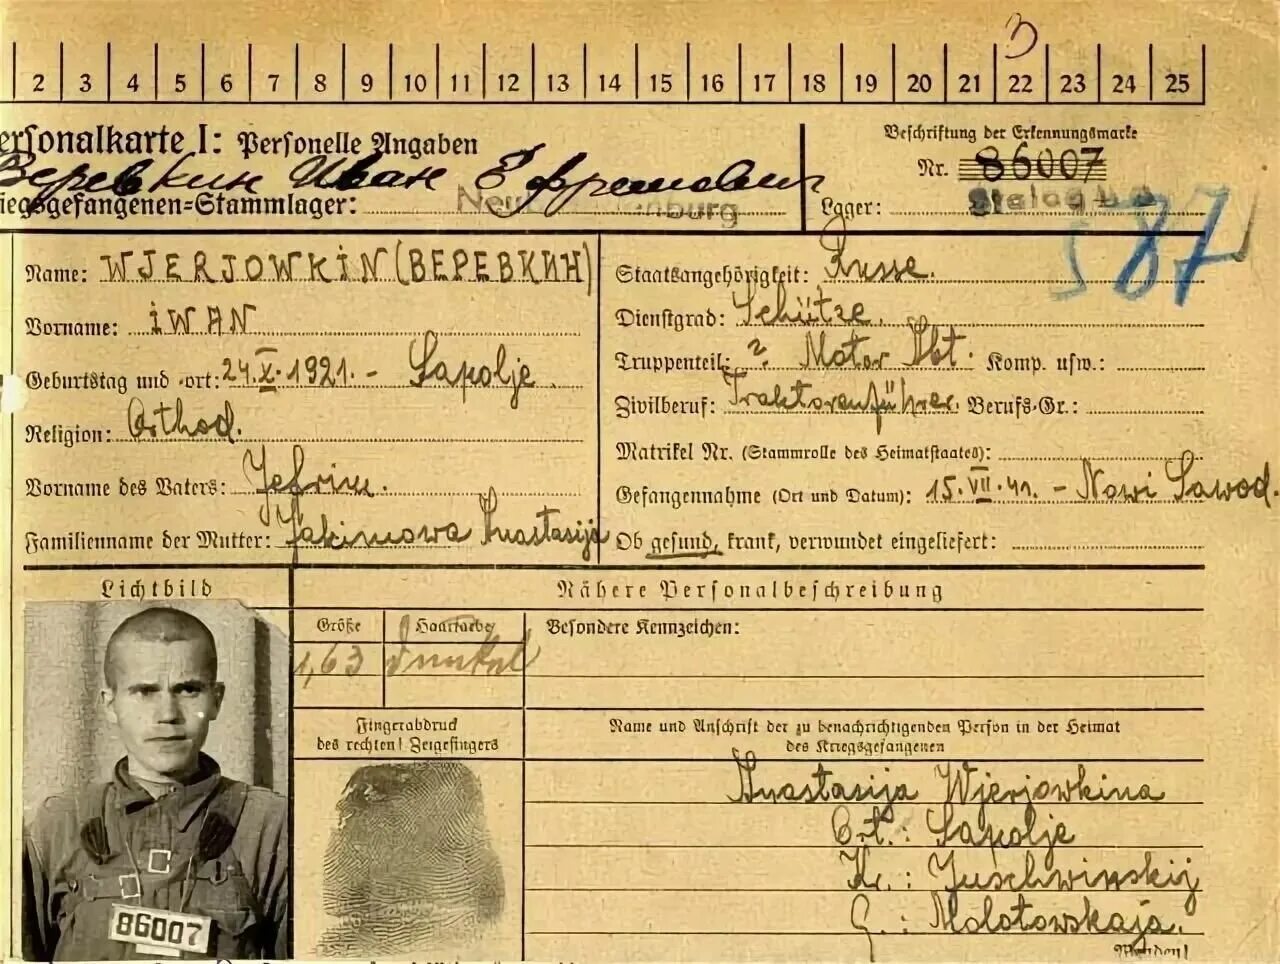 3
2 3 4 5 6 7 8 9 10 11 12 13 14 15 16 17 18 19 20 21 22 23 24 25
ersonalkarte I: Personelle Angaben
Beschriftung der Erkennungsmarke
Веревкин Иван Ефремович
Nr. 86007
iegsgefangenen-Stammlager:
Lager: Stalag
587
Name: WJERJOWKIN (ВЕРЕВКИН)
Staatsangehörigkeit: Russe.
Vorname: IWAN
Dienstgrad: Schütze.
Truppenteil: ? Motor Abt. Komp. usw.:
Geburtstag und -ort: 24.X.1921. - Sapolje.
Zivilberuf: Traktorenführer. Berufs-Gr.:
Religion: Orthod.
Matrikel Nr. (Stammrolle des Heimatstaates):
Vorname des Vaters: Jefrim.
Gefangennahme (Ort und Datum): 15.VII.41. - Nowi Sawod.
Familienname der Mutter: Jakimowa Anastasija
Ob gesund, krank, verwundet eingeliefert:
Lichtbild
Nähere Personalbeschreibung
Größe
Haarfarbe
Besondere Kennzeichen:
1,63
Dunkel
Fingerabdruck
des rechten! Zeigefingers
Name und Anschrift der zu benachrichtigenden Person in der Heimat
des Kriegsgefangenen
Anastasija Wjerjowkina
Ort.: Sapolje
Kr.: Juschwinskij
G.: Molotowskaja.
86007
Wenden!